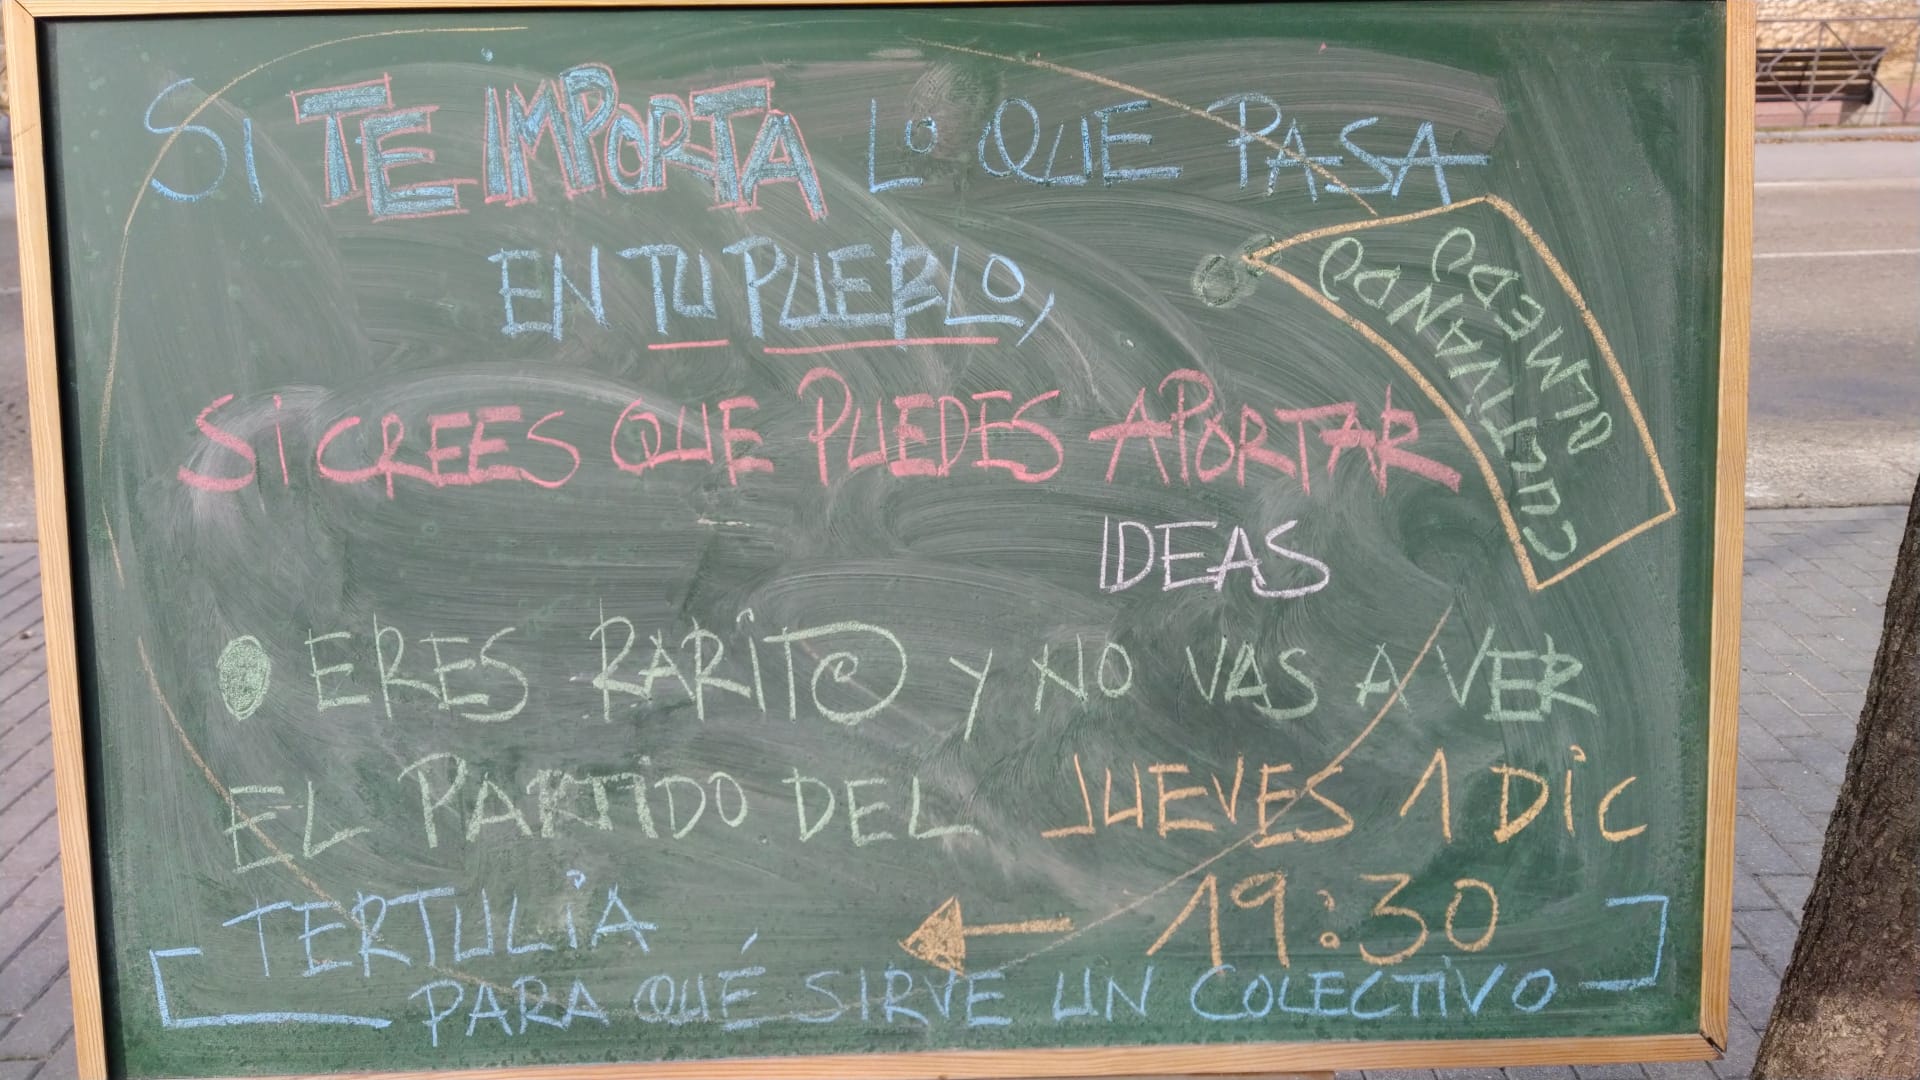 SI TE IMPORTA LO QUE PASA
EN TU PUEBLO,
CULTIVANDO
OLMEDO
SI CREES QUE PUEDES APORTAR
IDEAS
O ERES RARITO Y NO VAS A VER
EL PARTIDO DEL JUEVES 1 DIC
19:30
TERTULIA
PARA QUÉ SIRVE UN COLECTIVO